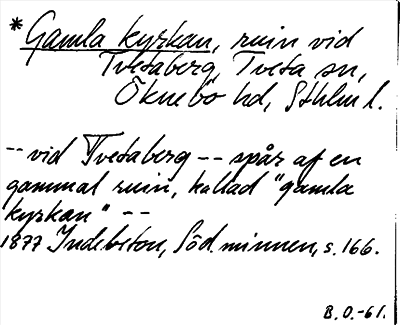 *Gamla kyrkan, ruin vid
Tvetaberg, Tveta sn,
Öknebo hd, Sthlm l.
-- vid Tvetaberg -- spår af en
gammal ruin, kallad "gamla
kyrkan" --
1877 Indebetou, Söd. minnen, s. 166.
B. O.-61.